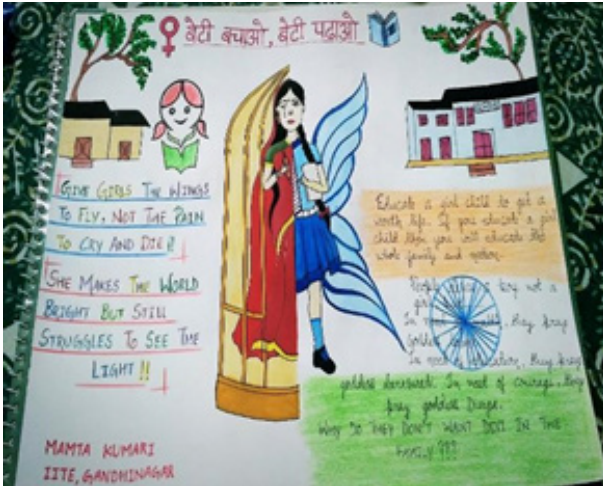 बेटी बचाओ, बेटी पढ़ाओ
GIVE GIRLS THE WINGS
TO FLY, NOT THE PAIN
TO CRY AND DIE!!
SHE MAKES THE WORLD
BRIGHT BUT STILL
STRUGGLES TO SEE THE
LIGHT!!
MAMTA KUMARI
IITE, GANDHINAGAR
Educate a girl child to get a
worth life. If you educate a girl
child then you will educate the
whole family and nation.
People a boy not a
girl
In they pray
goddess
In they pray
goddess Saraswati. In need of courage, they
pray goddess Durga.
WHY DO THEY DON'T WANT DEVI IN THE
FAMILY???